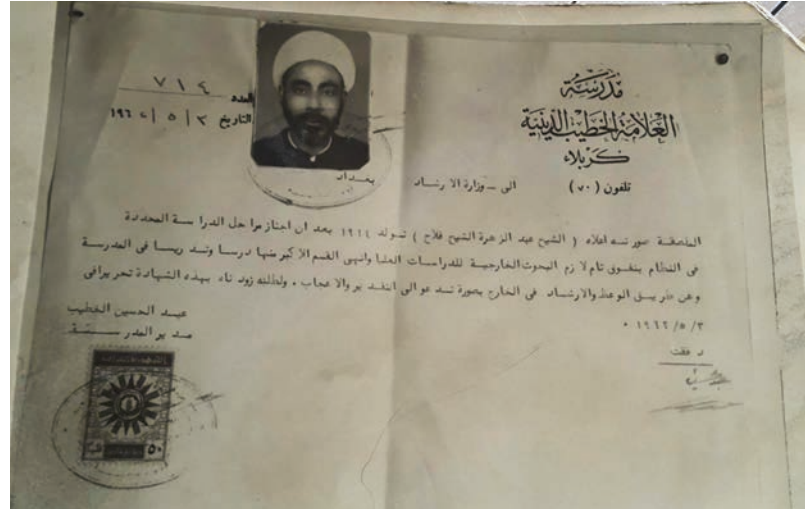 مدرسة
العلامة الخطيب الدينية
كربلاء
تلفون (٧٠)
العدد ٧١٤
التاريخ ٢ / ٥ / ١٩٦٢
الى ــ وزارة الارشاد بغداد
الملصقة صورته اعلاه ( الشيخ عبد الزهرة الشيخ فلاح ) تولد ١٩١٤ بعد ان اجتاز مراحل الدراسة المحددة
فى النظام بتفوق تام لازم البحوث الخارجية للدراسات العليا وانهى القسم الاكبر منها درسا وتدريسا فى المدرسة
وعن طريق الوعظ والارشاد فى الخارج بصورة تدعو الى التقدير والاعجاب . ولطلبه زودناه بهذه الشهادة تحريرا فى
٢ /٥/ ١٩٦٢ .
عبد الحسين الخطيب
مدير المدرسة
دققت
٥٠